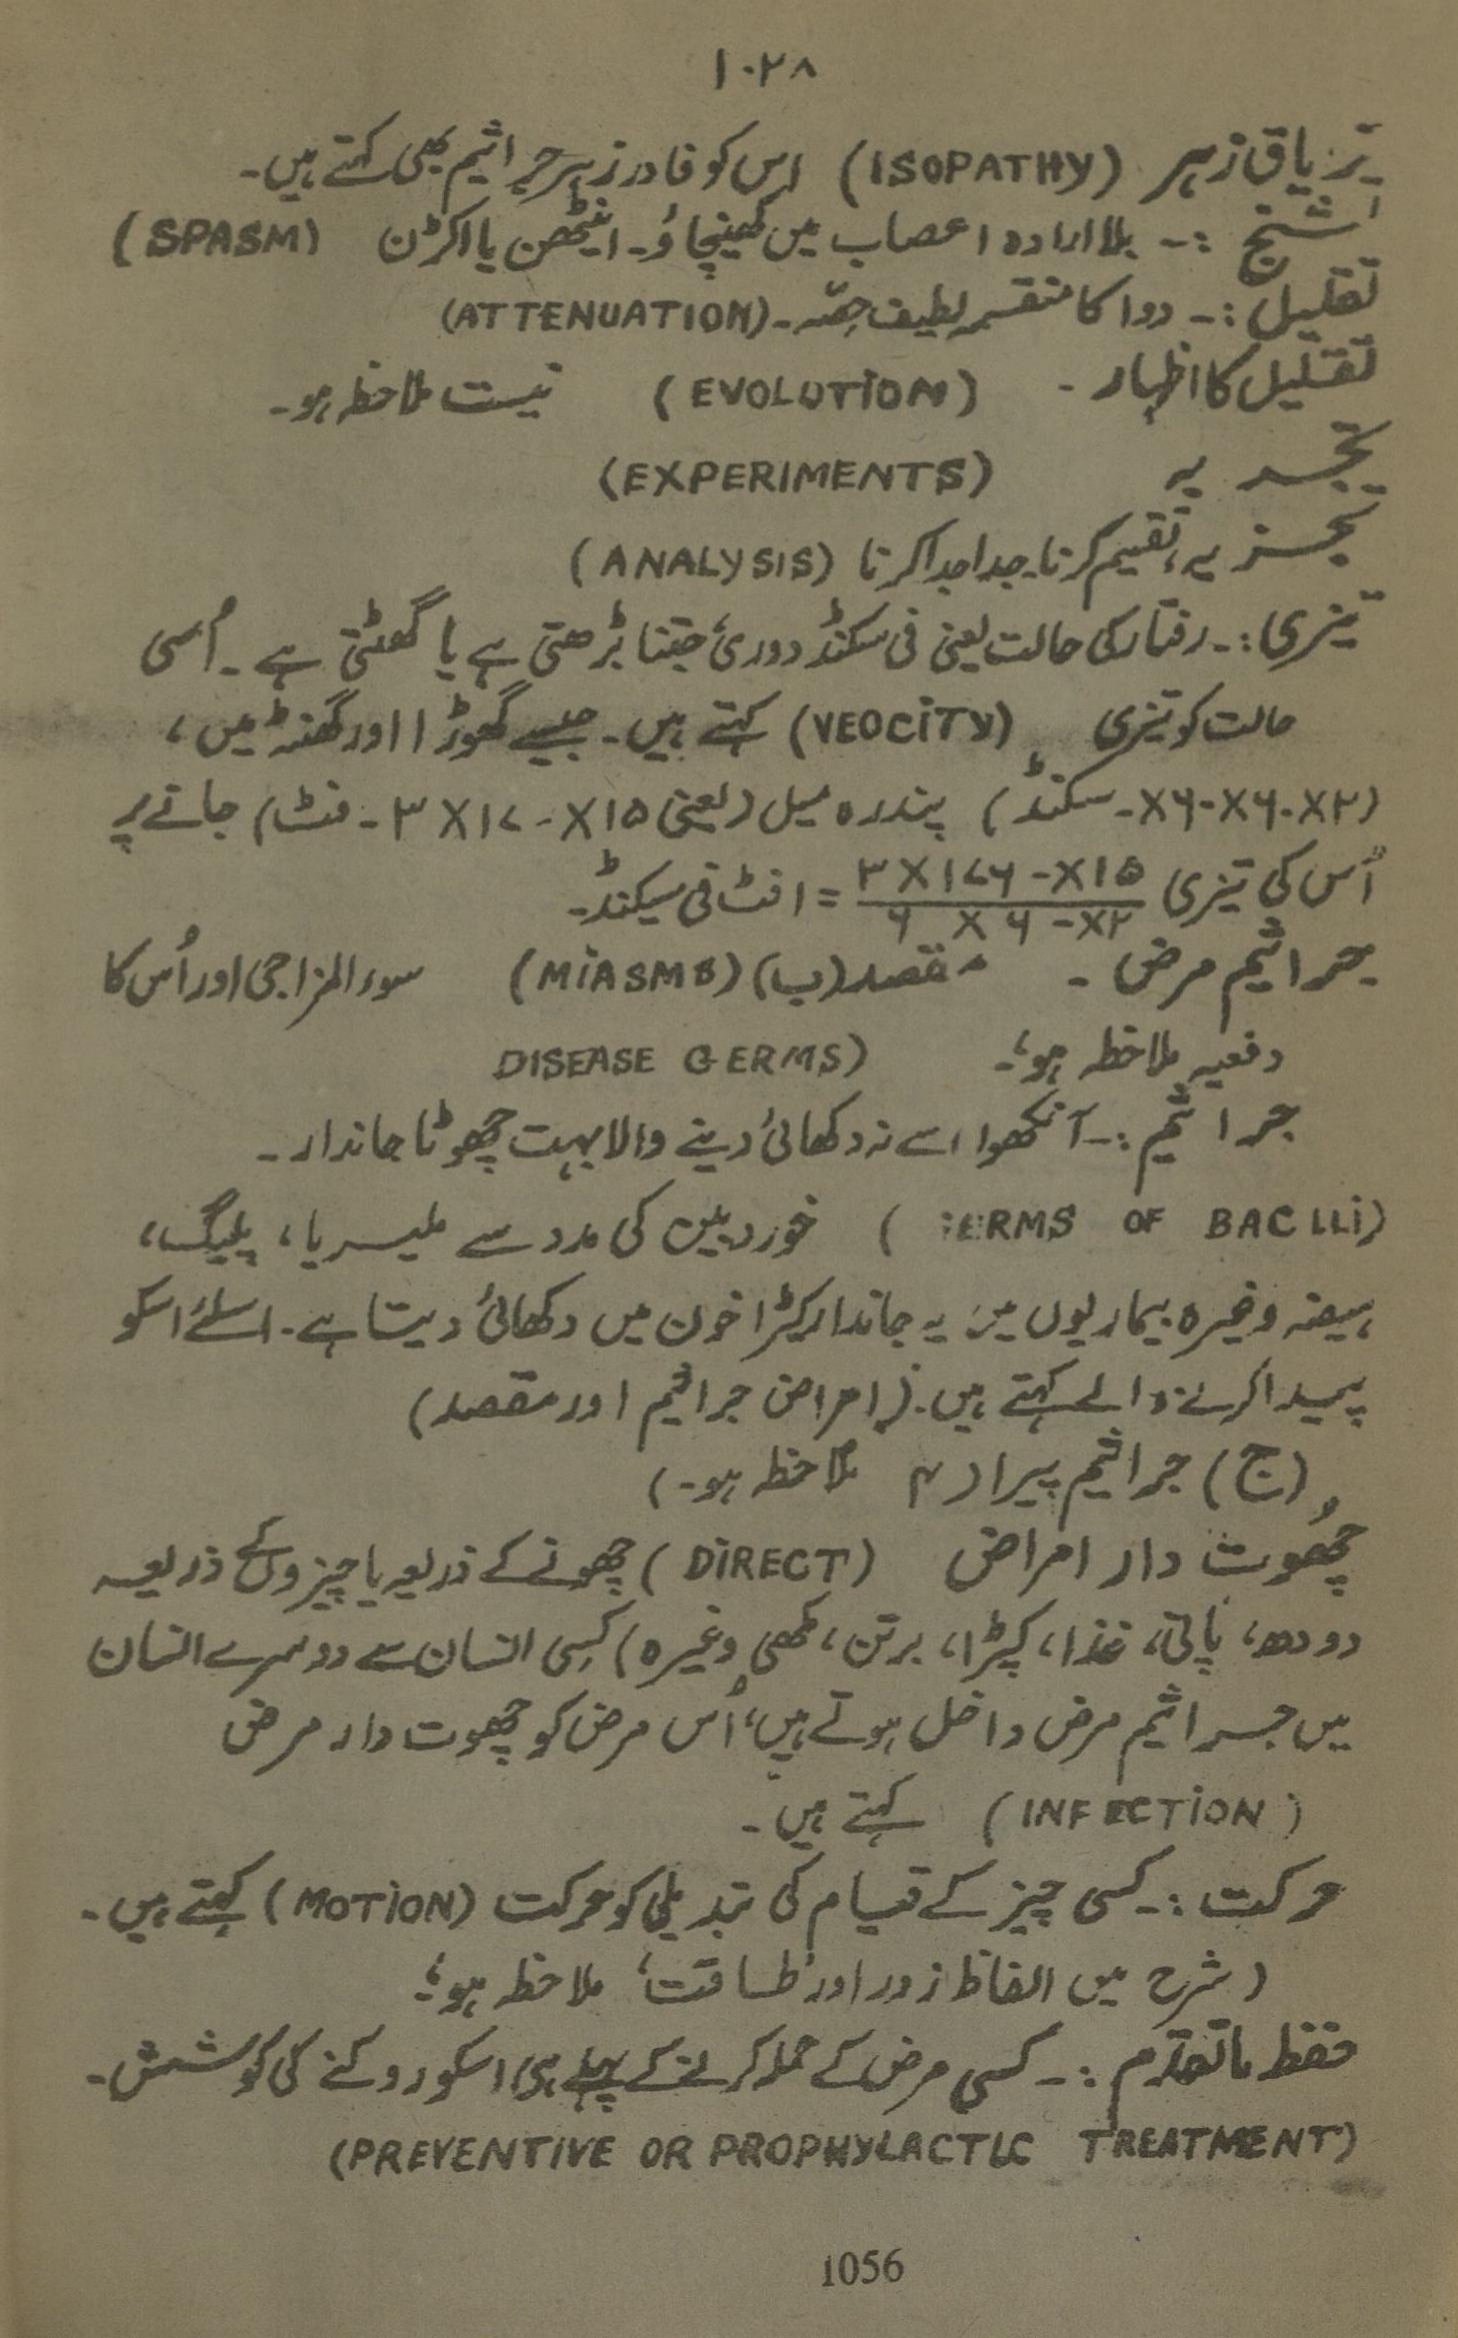 ۱۰۲۸
تریاق زہر (ISOPATHY) اس کو فادر زہر جراثیم بھی کہتے ہیں۔
تشنج :۔ بلا ارادہ اعصاب میں کھینچاؤ۔ اینٹھن یا اکڑن (SPASM)
تقلیل :۔ دوا کا منقسم لطیف حصّہ۔ (ATTENUATION)
تقلیل کا اظہار ۔ (EVOLUTION) نیست ملاحظہ ہو۔
تجربہ (EXPERIMENTS)
تجزیہ، تقسیم کرنا۔ جدا جدا کرنا (ANALYSIS)
تیزی :۔ رفتار کی حالت یعنی فی سکنڈ دوری جتنا بڑھتی ہے یا گھٹتی ہے ۔ اُسی
حالت کو تیزی (VEOCITY) کہتے ہیں۔ جیسے گھوڑا ا اور گھنٹہ میں ،
(۲×۶۰×۶۰× سکنڈ) پندرہ میل (یعنی ۱۵×۱۷۰×۳ ۔ فٹ) جانے پر
اُس کی تیزی ۱۵×۱۷۶۰×۳ / ۲×۶۰×۶ = ا فٹ فی سیکنڈ۔
جراثیم مرض ۔ مقصد (ب) (MIASMS) سوء المزاجی اور اُس کا
دفعیہ ملاحظہ ہو؛۔ DISEASE GERMS)
جراثیم :۔ آنکھوا سے نہ دکھائی دینے والا بہت چھوٹا جاندار ۔
(ERMS OF BACLLI) خوردبین کی مدد سے ملیریا، پلیگ،
ہیضہ وغیرہ بیماریوں میں یہ جاندار کیڑا خون میں دکھائی دیتا ہے۔ اسلئے اسکو
پیدا کرنے والے کہتے ہیں۔ (امراض جراثیم اور مقصد)
(ج) جراثیم پیرا ۲ ملاحظہ ہو۔)
چھُوت دار امراض (DIRECT) چھونے کے ذریعہ یا چیزوں کے ذریعہ
دودھ، پانی، غذا، کپڑا، برتن، مکھی وغیرہ) کسی انسان سے دوسرے انسان
میں جراثیم مرض داخل ہوتے ہیں، اُس مرض کو چھوت دار مرض
(INFECTION) کہتے ہیں۔
حرکت :۔ کسی چیز کے قیام کی تبدیلی کو حرکت (MOTION) کہتے ہیں۔
(شرح میں الفاظ زور اور طاقت، ملاحظہ ہو؛
حفظ ماتقدّم :۔ کسی مرض کے حملہ کرنے کے پہلے ہی اسکو روکنے کی کوشش۔
(PREVENTIVE OR PROPHYLACTIC TREATMENT)
1056